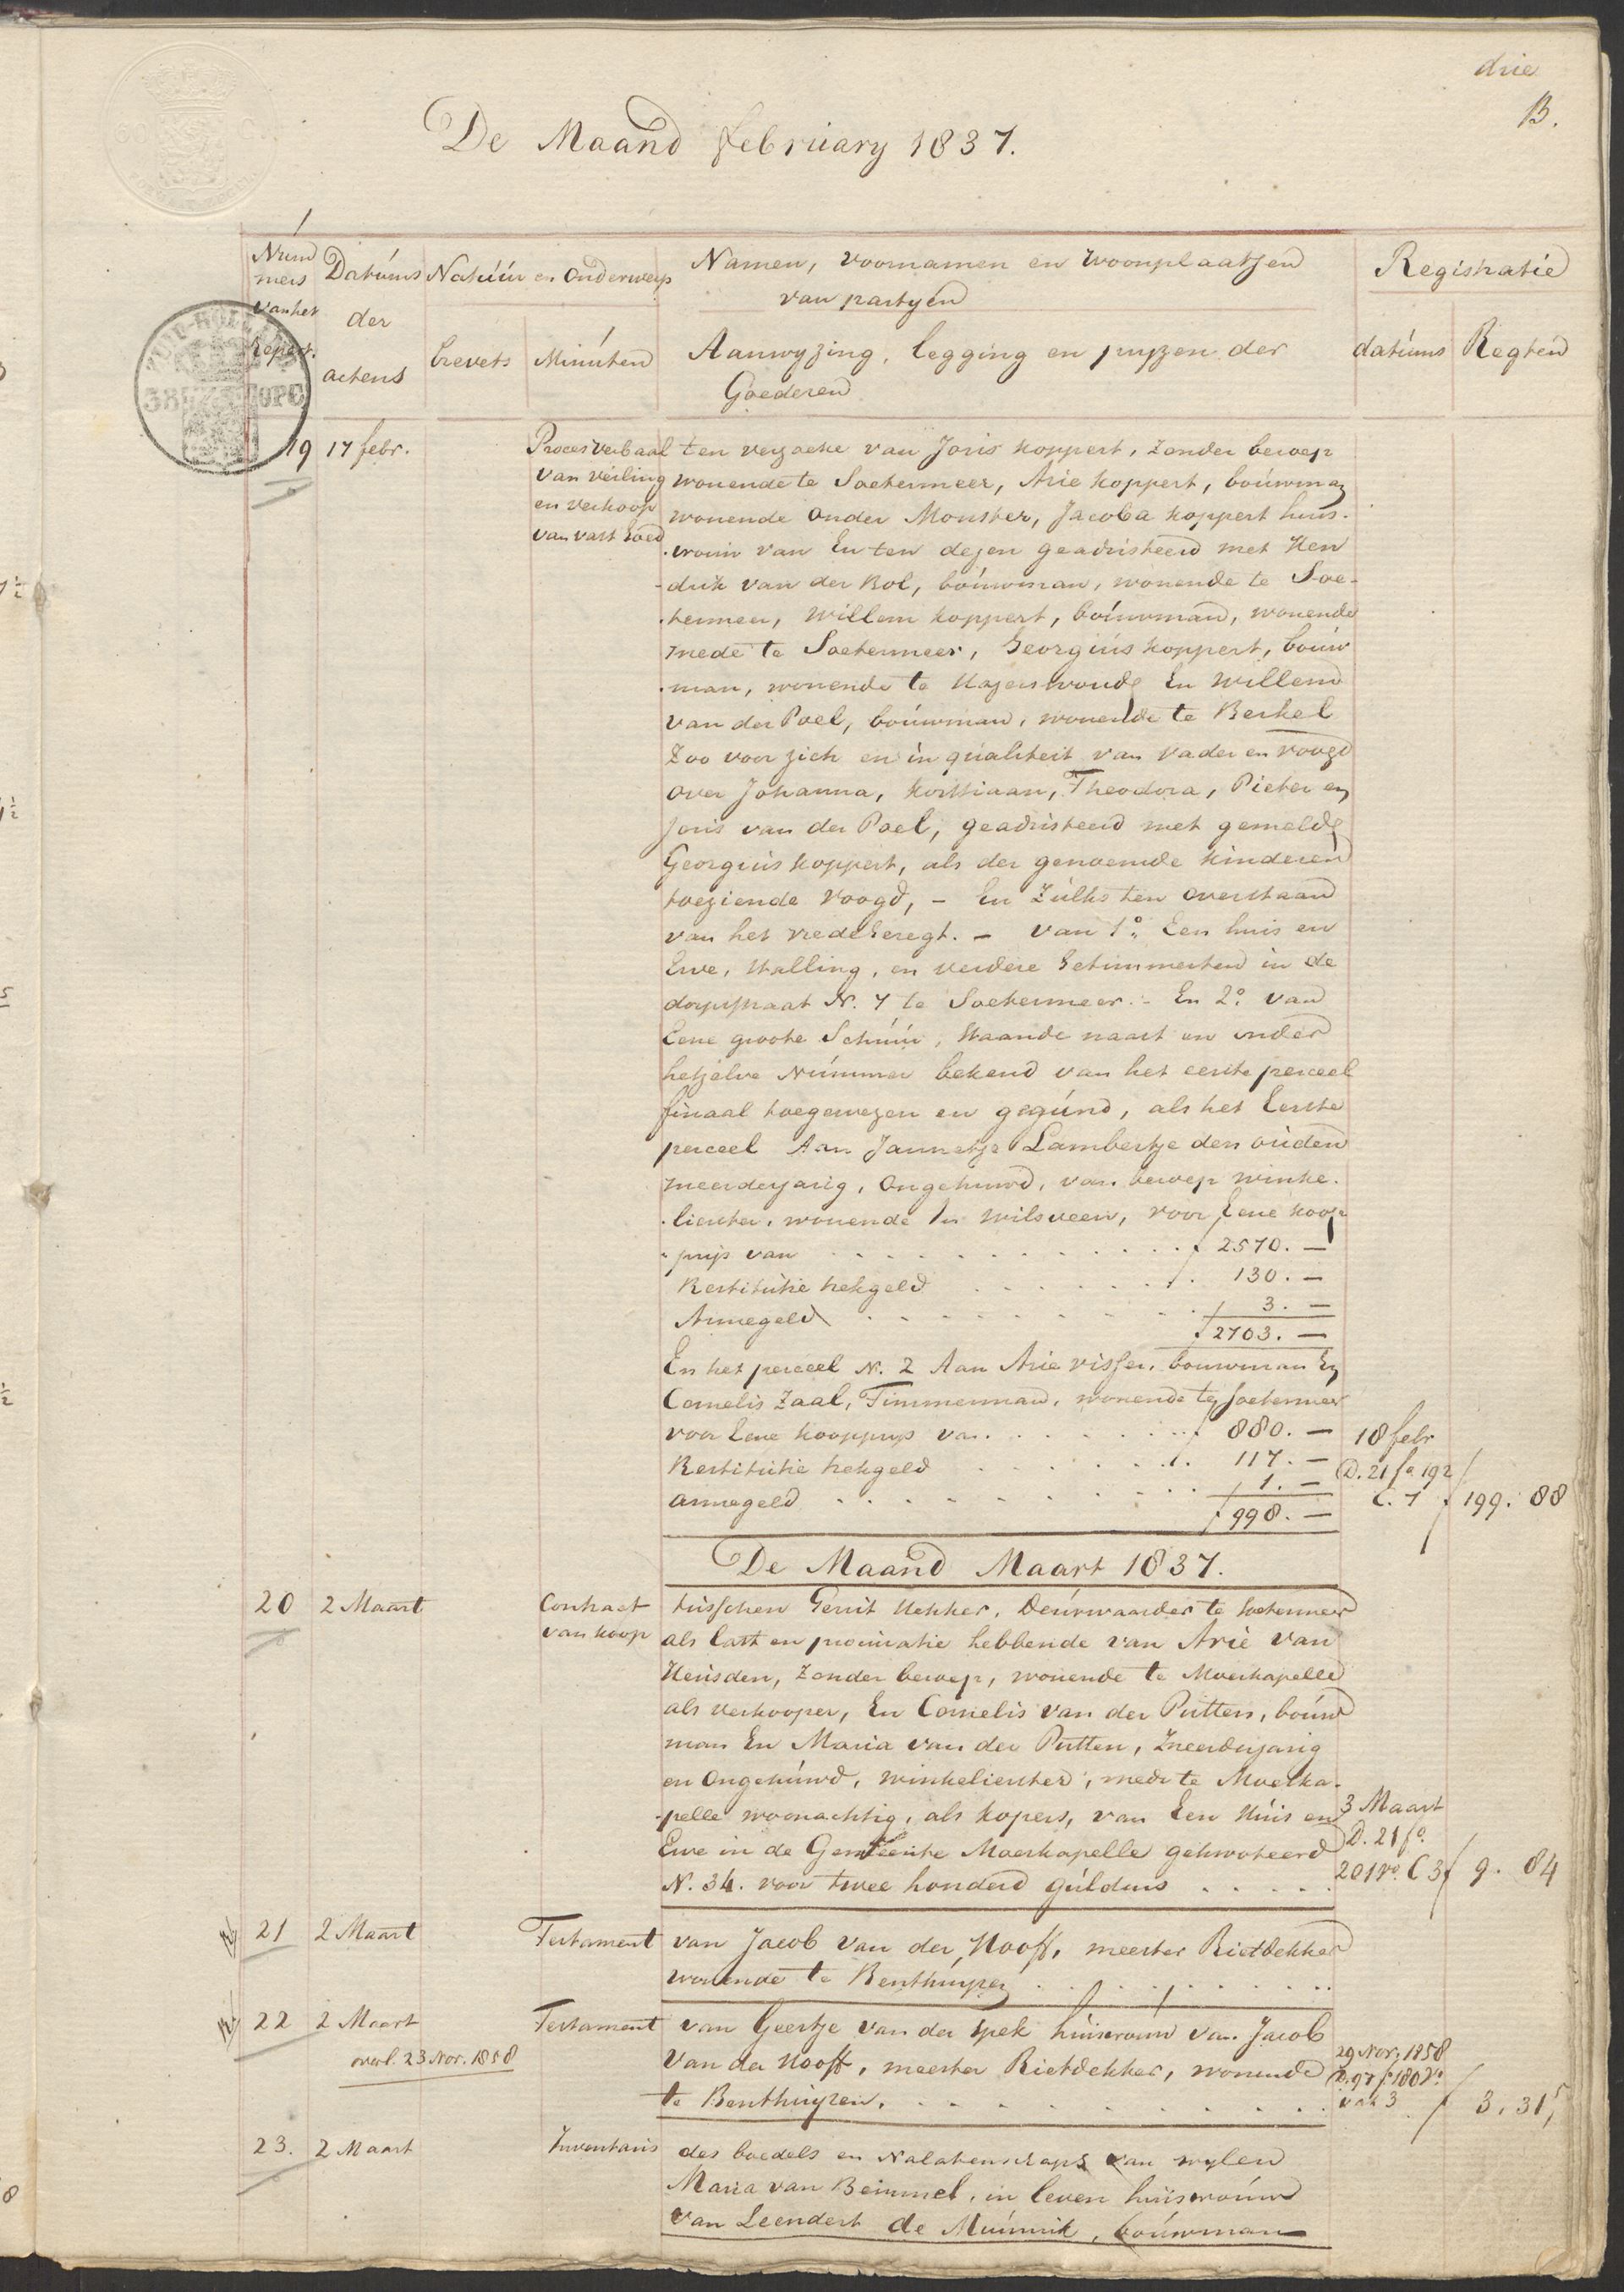 drie
B.
De Maand february 1837.
Num
mers
van het
repert.
Datums
der
actens
Natuur en Onderwerp
brevets
Minuten
Namen, voornamen en woonplaatsen
van partyen
Aanwyzing, legging en pryzen der
Goederen
Registratie
datums
Regten
ZUID-HOLLAND
38
OPC
19
17 febr.
Proces verbaal
van veiling
en verkoop
van vast goed
ten verzoeke van Joris Koppert, zonder beroep
wonende te Soetermeer, Arie Koppert, bouwman
wonende onder Monster, Jacoba Koppert huis-
-vrouw van En ten dezen geadsisteerd met Hen
-drik van der Bol, bouwman, wonende te Soe-
-termeer, Willem Koppert, bouwman, wonende
mede te Soetermeer, Georgius Koppert, bouw
-man, wonende te Hazerswoude En Willem
van der Poel, bouwman, wonende te Berkel
Zoo voor zich en in qualiteit van vader en voogd
over Johanna, Korstiaan, Theodora, Pieter en
Joris van der Poel, geadsisteerd met gemelde
Georgius Koppert, als der genoemde kinderen
toeziende voogd, - En Zulks ten overstaan
van het vredegeregt. - van 1o. Een huis en
Erve, stalling, en verdere getimmerten in de
dorpstraat N. 7 te Soetermeer. - En 2o. van
Eene groote Schuur, staande naast en onder
hetzelve Nummer bekend van het eerste perceel
finaal toegewezen en gegund, als het Eerste
perceel Aan Jannetje Lambertje den ouden
meerderjarig, Ongehuwd, van beroep winke-
-lierster, wonende in Wilsveen, voor Eene koop
-prijs van . . . . . . . . f 2570. —
Restitutie hekgeld . . . . . . 130. —
Armegeld . . . . . . . . . 3. —
f 2703. —
En het perceel N. 2 Aan Arie Visser, bouwman En
Cornelis Zaal, Timmerman, wonende te Soetermeer
voor Eene koopprys van . . . . . f 880. —
18 febr
Restitutie hekgeld . . . . . . 117. —
D. 21 fo. 192
armegeld . . . . . . . . . 1. —
C. 7 f 199. 88
f 998. —
De Maand Maart 1837.
20
2 Maart
Contract
van koop
tusschen Gerrit Hekker, Deurwaarder te Soetermeer
als last en procuratie hebbende van Arie van
Heusden, Zonder beroep, wonende te Moerkapelle
als verkooper, En Cornelis van der Putten, bouw
man En Maria van der Putten, meerderjarig
en Ongehuwd, winkelierster, mede te Moerka-
-pelle woonachtig, als kopers, van Een Huis en
Erve in de Gemeente Moerkapelle gekwoteerd
N. 34. voor twee honderd guldens . . . . .
3 Maart
D. 21 fo.
201 vo. C 3 f 9. 84
21
2 Maart
Testament
van Jacob van der Hooff, meester Rietdekker
wonende te Benthuyzen . . . . . .
22
2 Maart
overl. 23 Nov. 1858
Testament
van Geertje van der Spek huisvrouw van Jacob
van der Hooff, meester Rietdekker, wonende
te Benthuyzen. . . . . . . . .
29 Nov. 1858
D. 97 fo 180 Vo
vak 3 f 3. 31 5
23.
2 Maart
Inventaris
des boedels en Nalatenschaps van wylen
Maria van Bemmel, in leven huisvrouw
van Leendert de Muinnik, bouwman